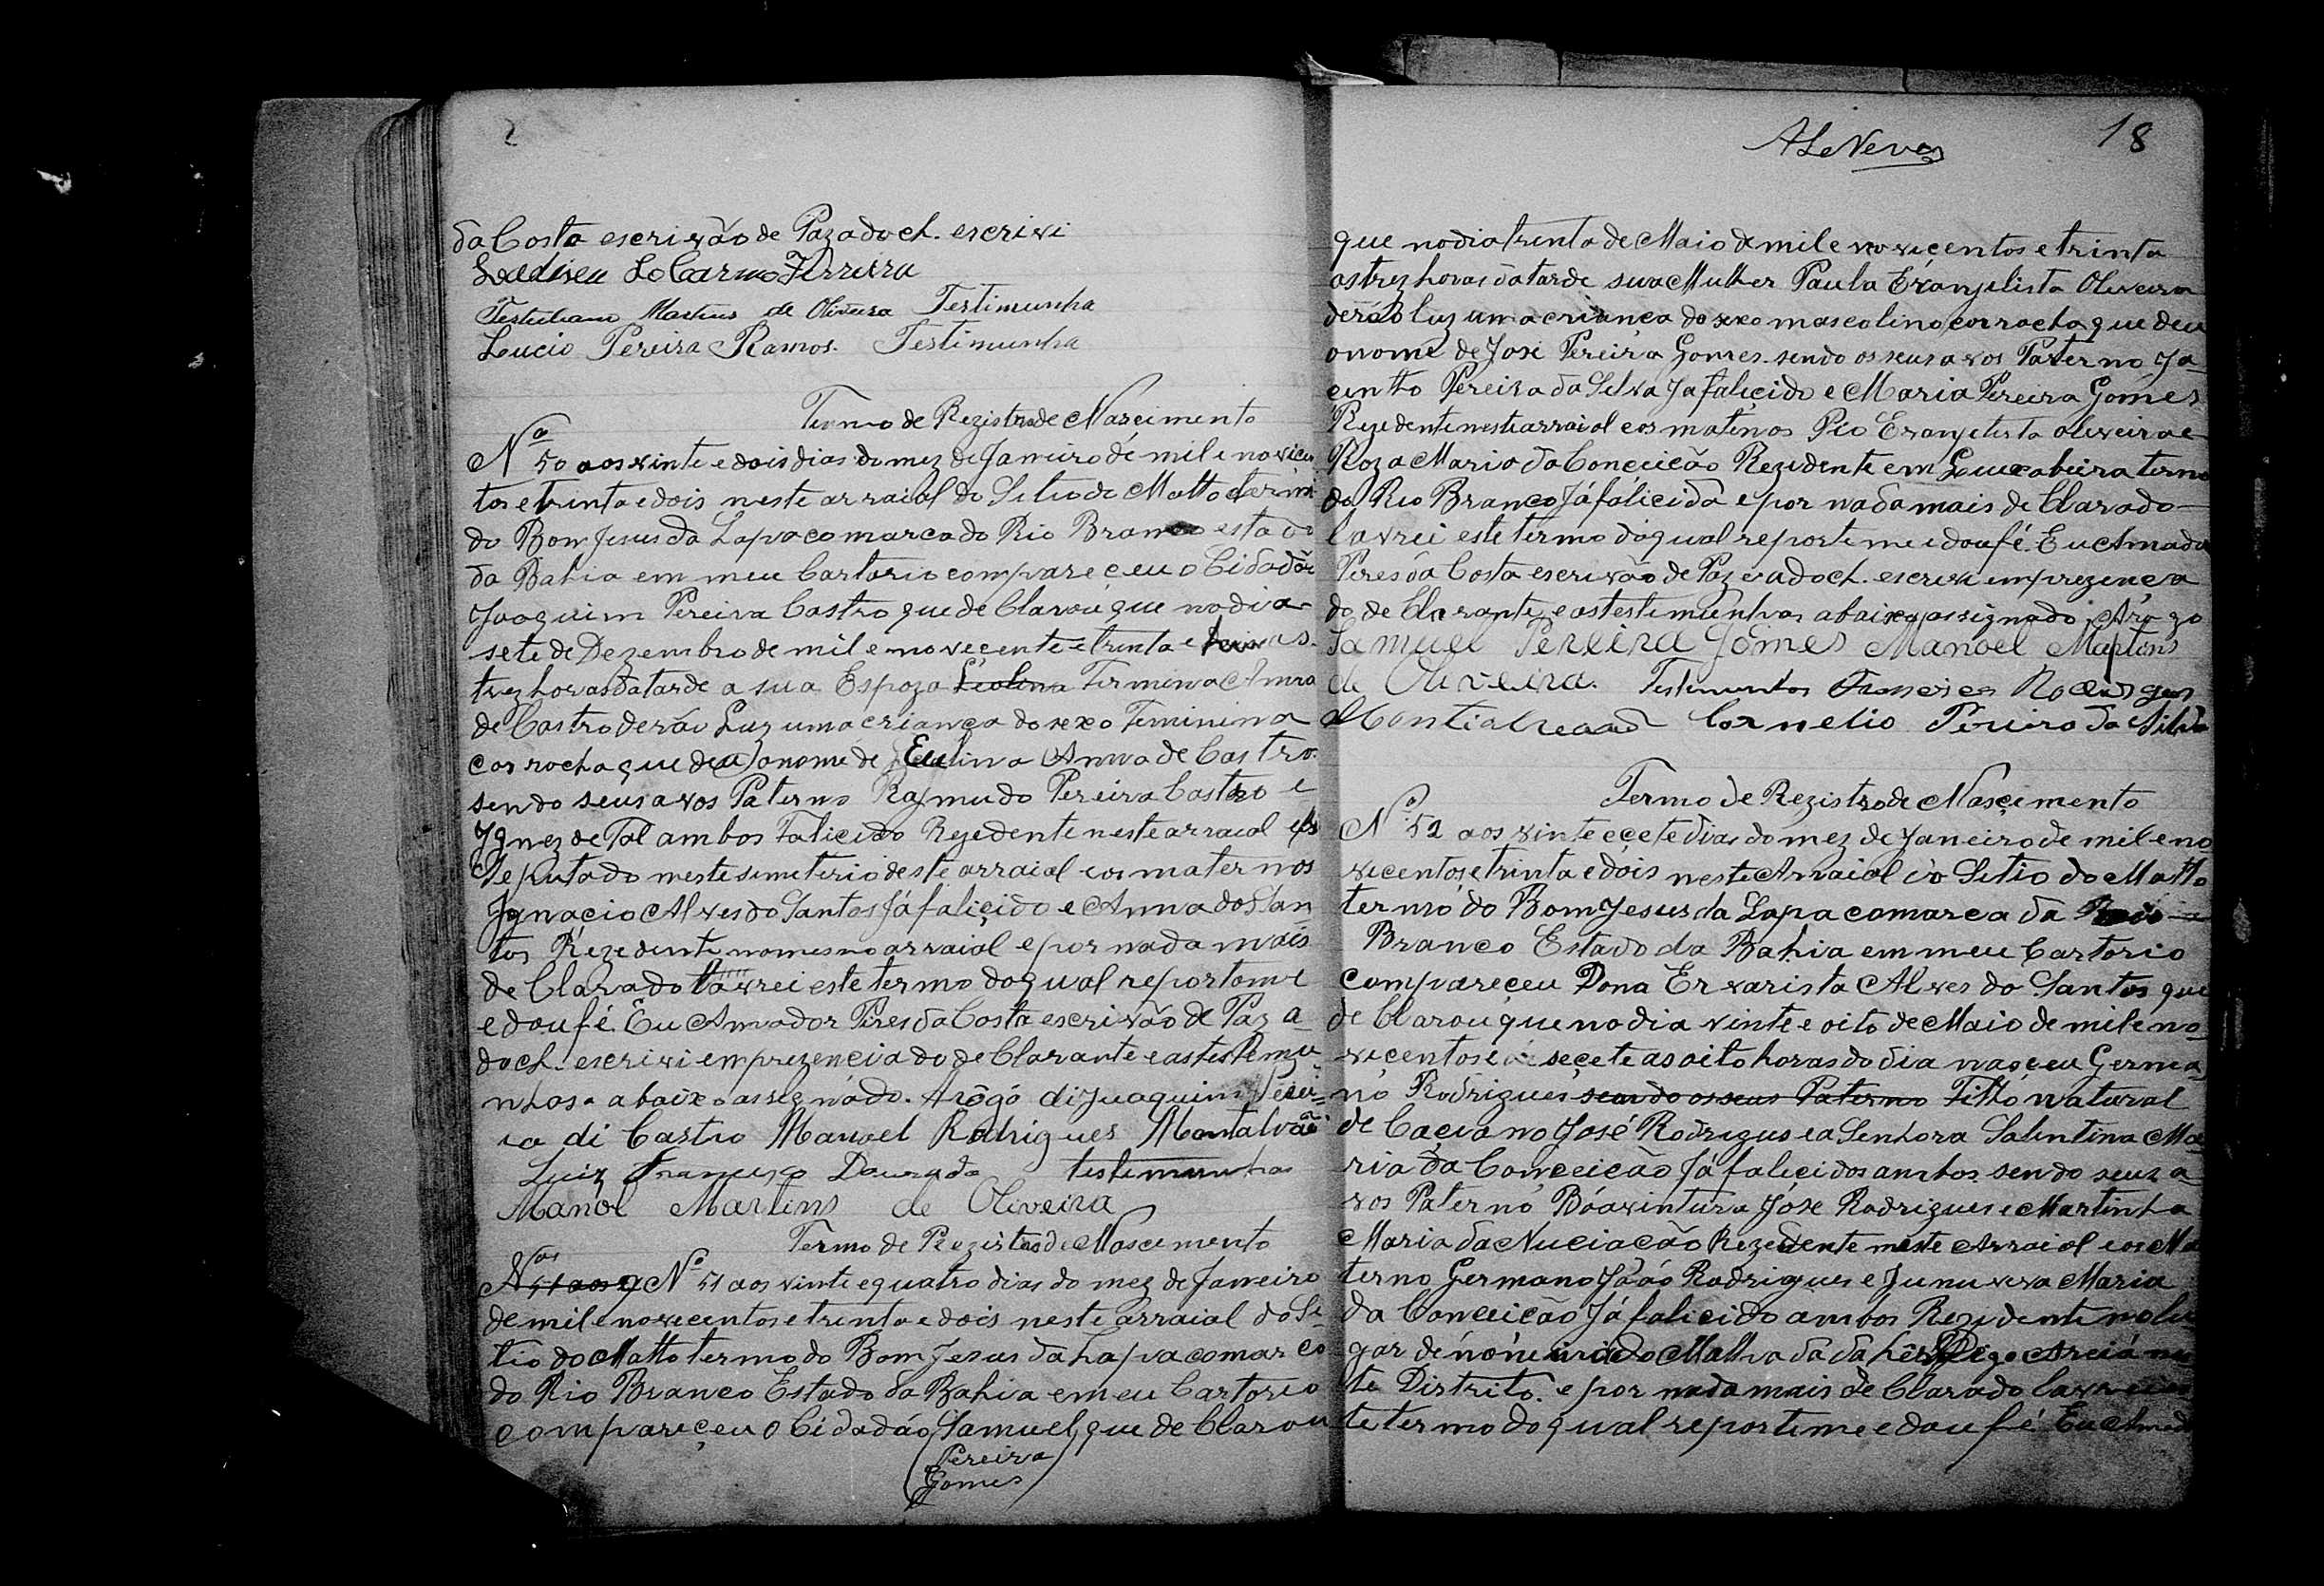 2
da Costa escrivão de Paz adoch. escrivi
do Carmo Ferreira
Martins de Oliveira Testimunha
Lucio Pereira Ramos. Testimunha
Termo de Rezistro de Nascimento
Nº 50 aos vinte e dois dias do mez de Janeiro de mil e novicen
tos e trinta e dois neste arraial do Sitio do Matto termo
do Bom Jesus da Lapa comarca do Rio Branco estado
da Bahia em meu Cartorio compareceu o Cidadão
Joaquim Pereira Castro que de Clarou que no dia
sete de Dezembro de mil e novecente e trinta e as
trez horas da tarde a sua Espoza Firmina Anna
de Castro derão Luz uma criança do sexo Feminina
cor rocha que deu o nome de Eulina Anna de Castro.
sendo seus avos Paterno Raymudo Pereira Castro e
Ygnez de Tal ambos Falicido Rezedente neste arraial e
Seputado neste simeterio deste arraial e os maternos
Jgnacio Alves do Santos Já faliçido e Anna do San
tos Rezedente no mesmo arraiol e por nada mais
de Clarado lavrei este termo do qual reportome
e dou fé. Eu Amador Pires da Costa escrivão de Paz a
doch. escrivi em prezencia do de Clarante e as testemu
nhas abaixo assegnado. Arôgó di Juaquim Perei-
ra di Castro Manoel Rodrigues Montalvão
Luiz Francisco Dourado testemunha
Manôl Martins de Oliveira
Termo de Rezistro de Nascemento
Nº 51 aos Nº 51 aos vinte e quatro dias do mez de Janeiro
de mil e novecentos e trinta e dois neste arraial do Si
tio do Matto termo do Bom Jesus da Lapa comarca
do Rio Branco Estado da Bahia em eu Cartorio
compareçeu o Cidadão Samuel, que de Clarou
(Pereira
Gomes)
ALeNeves
18
que no dia trinta de Maio de mil e novecentos e trinta
as trez horas da tarde sua Mulher Paula Evangelista Oliveira
derão luz uma criança do sexo mascolino cor rocha que deu
o nome de José Pereira Gomes. sendo os seus avos Paterno Ja
cintto Pereira da Silva Ja faliçido e Maria Pereira Gomes
Rezedente neste arraiol e os matenos Pio Evangelista oliveira e
Roza Maria da Conceicão Rezedente em termo
do Rio Branco Já fáliçida e por nada mais de Clarado
lavrei este termo do qual reporteme e dou fé. Eu Amado
Peres da Costa escrivão de Paz e adoch. escrivi em prezença
do de Clarante, e as testimunhas abaixo assignado Arogo
Samuel Pereira Gomes Manoel Martins
de Oliveira. Testimunhas Rodrigues
Cornelio Pereira da Silva
Termo de Rezistro de Nasçemento
Nº 52 aos vinte e çete dias do mez de Janeiro de mil e no
vecentos, e trinta e dois neste Arraial do Sitio do Matto
termo do Bom Jesus da Lapa comarca da
Branco Estado da Bahia em meu Cartorio
compareçeu Dona Ervarista Alves do Santos que
de Clarou que no dia vinte e oito de Maio de mil e no
vecentos e seçete as oito horas do dia nasçeu Germa
no Rodrigues sendo os seus Paterno Filho natural
de Caçiano José Rodrigus e a Senhora Salentina Ma
ria da Conçeicão Já faliçidos ambos. sendo seus a
vos Paterno Bóaventura José Rodrigues e Martinha
Maria da Nuciacão Rezedente neste Arraiol e os Ma
terno Germano João Rodrigues e Junuveva Maria
da Conceicão Já faliçido ambos Rezedente no lu
gar dénónimido Areiá nes
te Distrito. e por nada mais de Clarado lavrei es
te termo do qual reportime e dou fé Eu Amado